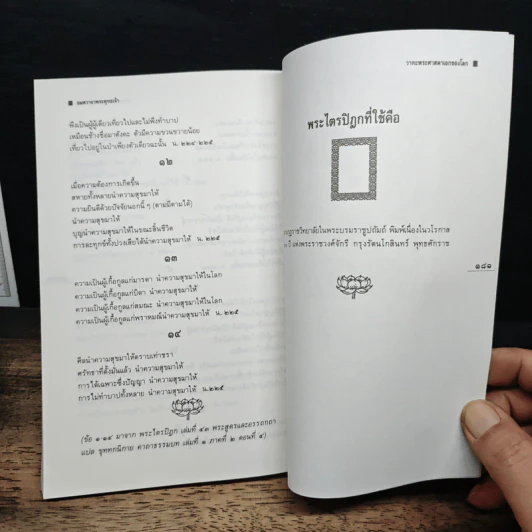 อมตวาจาพระพุทธเจ้า
พึงเป็นผู้ผู้เดียวเที่ยวไปและไม่พึงทำบาป
เหมือนช้างชื่อมาตังคะ ตัวมีความขวนขวายน้อย
เที่ยวไปอยู่ในป่าเพียงตัวเดียวฉะนั้น น. ๒๒๔ ๒๒๕
๑๒
เมื่อความต้องการเกิดขึ้น
สหายทั้งหลายนำความสุขมาให้
ความยินดีด้วยปัจจัยนอกนี้ ๆ (ตามมีตามได้)
นำความสุขมาให้
บุญนำความสุขมาให้ในขณะสิ้นชีวิต
การละทุกข์ทั้งปวงเสียได้นำความสุขมาให้ น. ๒๒๕
๑๓
ความเป็นผู้เกื้อกูลแก่มารดา นำความสุขมาให้ในโลก
ความเป็นผู้เกื้อกูลแก่บิดา นำความสุขมาให้
ความเป็นผู้เกื้อกูลแก่สมณะ นำความสุขมาให้ในโลก
ความเป็นผู้เกื้อกูลแก่พราหมณ์นำความสุขมาให้ น. ๒๒๕
๑๔
ศีลนำความสุขมาให้ตราบเท่าชรา
ศรัทธาที่ตั้งมั่นแล้ว นำความสุขมาให้
การได้เฉพาะซึ่งปัญญา นำความสุขมาให้
การไม่ทำบาปทั้งหลาย นำความสุขมาให้ น.๒๒๕
(ข้อ ๑-๑๔ มาจาก พระไตรปิฎก เล่มที่ ๔๓ พระสูตรและอรรถกถา
แปล ขุททกนิกาย คาถาธรรมบท เล่มที่ ๑ ภาคที่ ๒ ตอนที่ ๔)
วาทะพระศาสดาเอกของโลก
พระไตรปิฎกที่ใช้คือ
มกุฏราชวิทยาลัยในพระบรมราชูปถัมภ์ พิมพ์เนื่องในวโรกาส
ปี แห่งพระราชวงศ์จักรี กรุงรัตนโกสินทร์ พุทธศักราช
๑๘๑